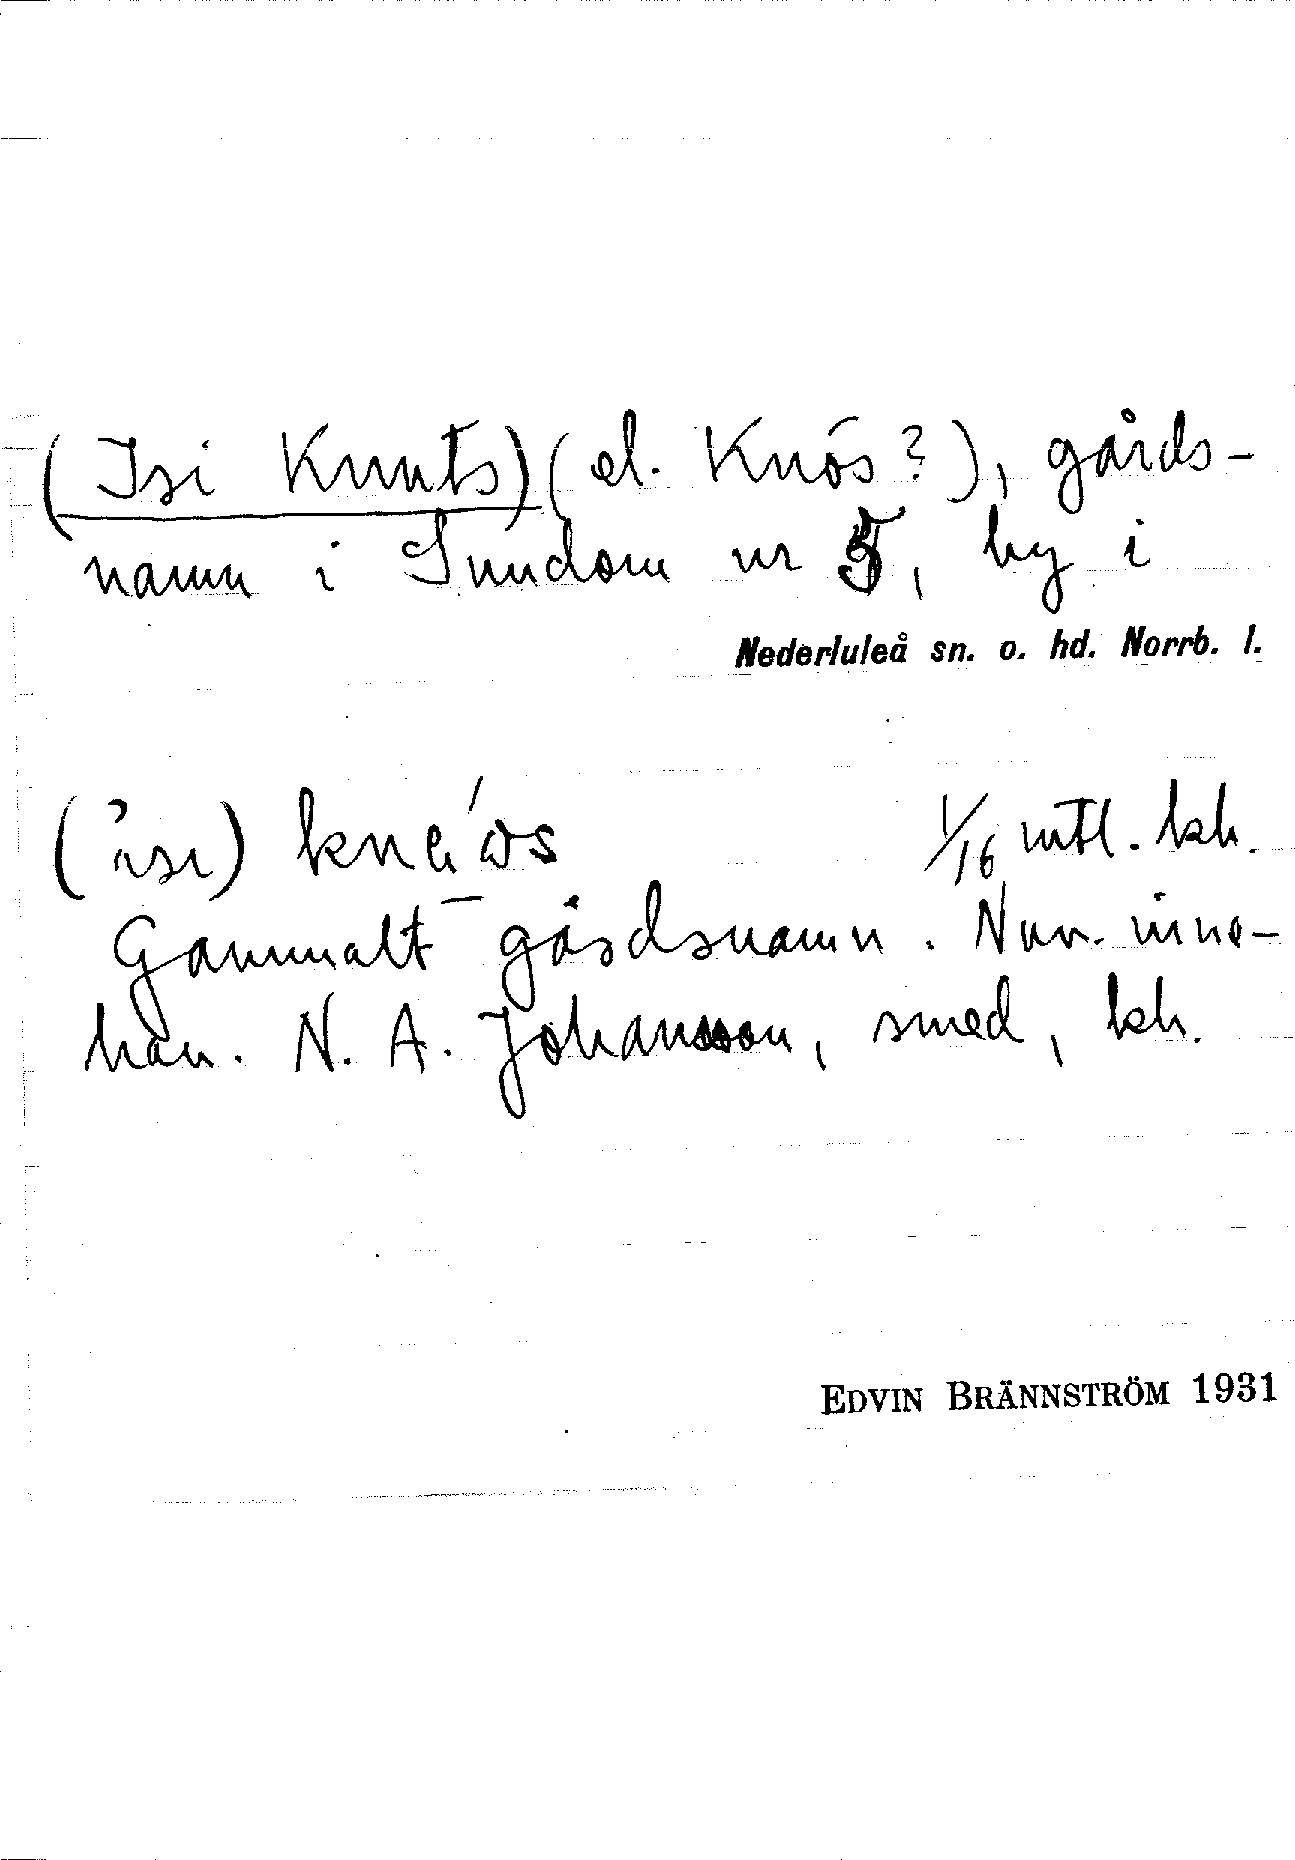 (Isi Knuts) (el. Knös?), gårds-
namn i Sundom nr 5, by i
Nederluleå sn. o. hd. Norrb. l.
1/16 mtl. kh.
Gammalt gårdsnamn. Nuv. inne-
hav. N. A. Johansson, smed, kh.
EDVIN BRÄNNSTRÖM 1931